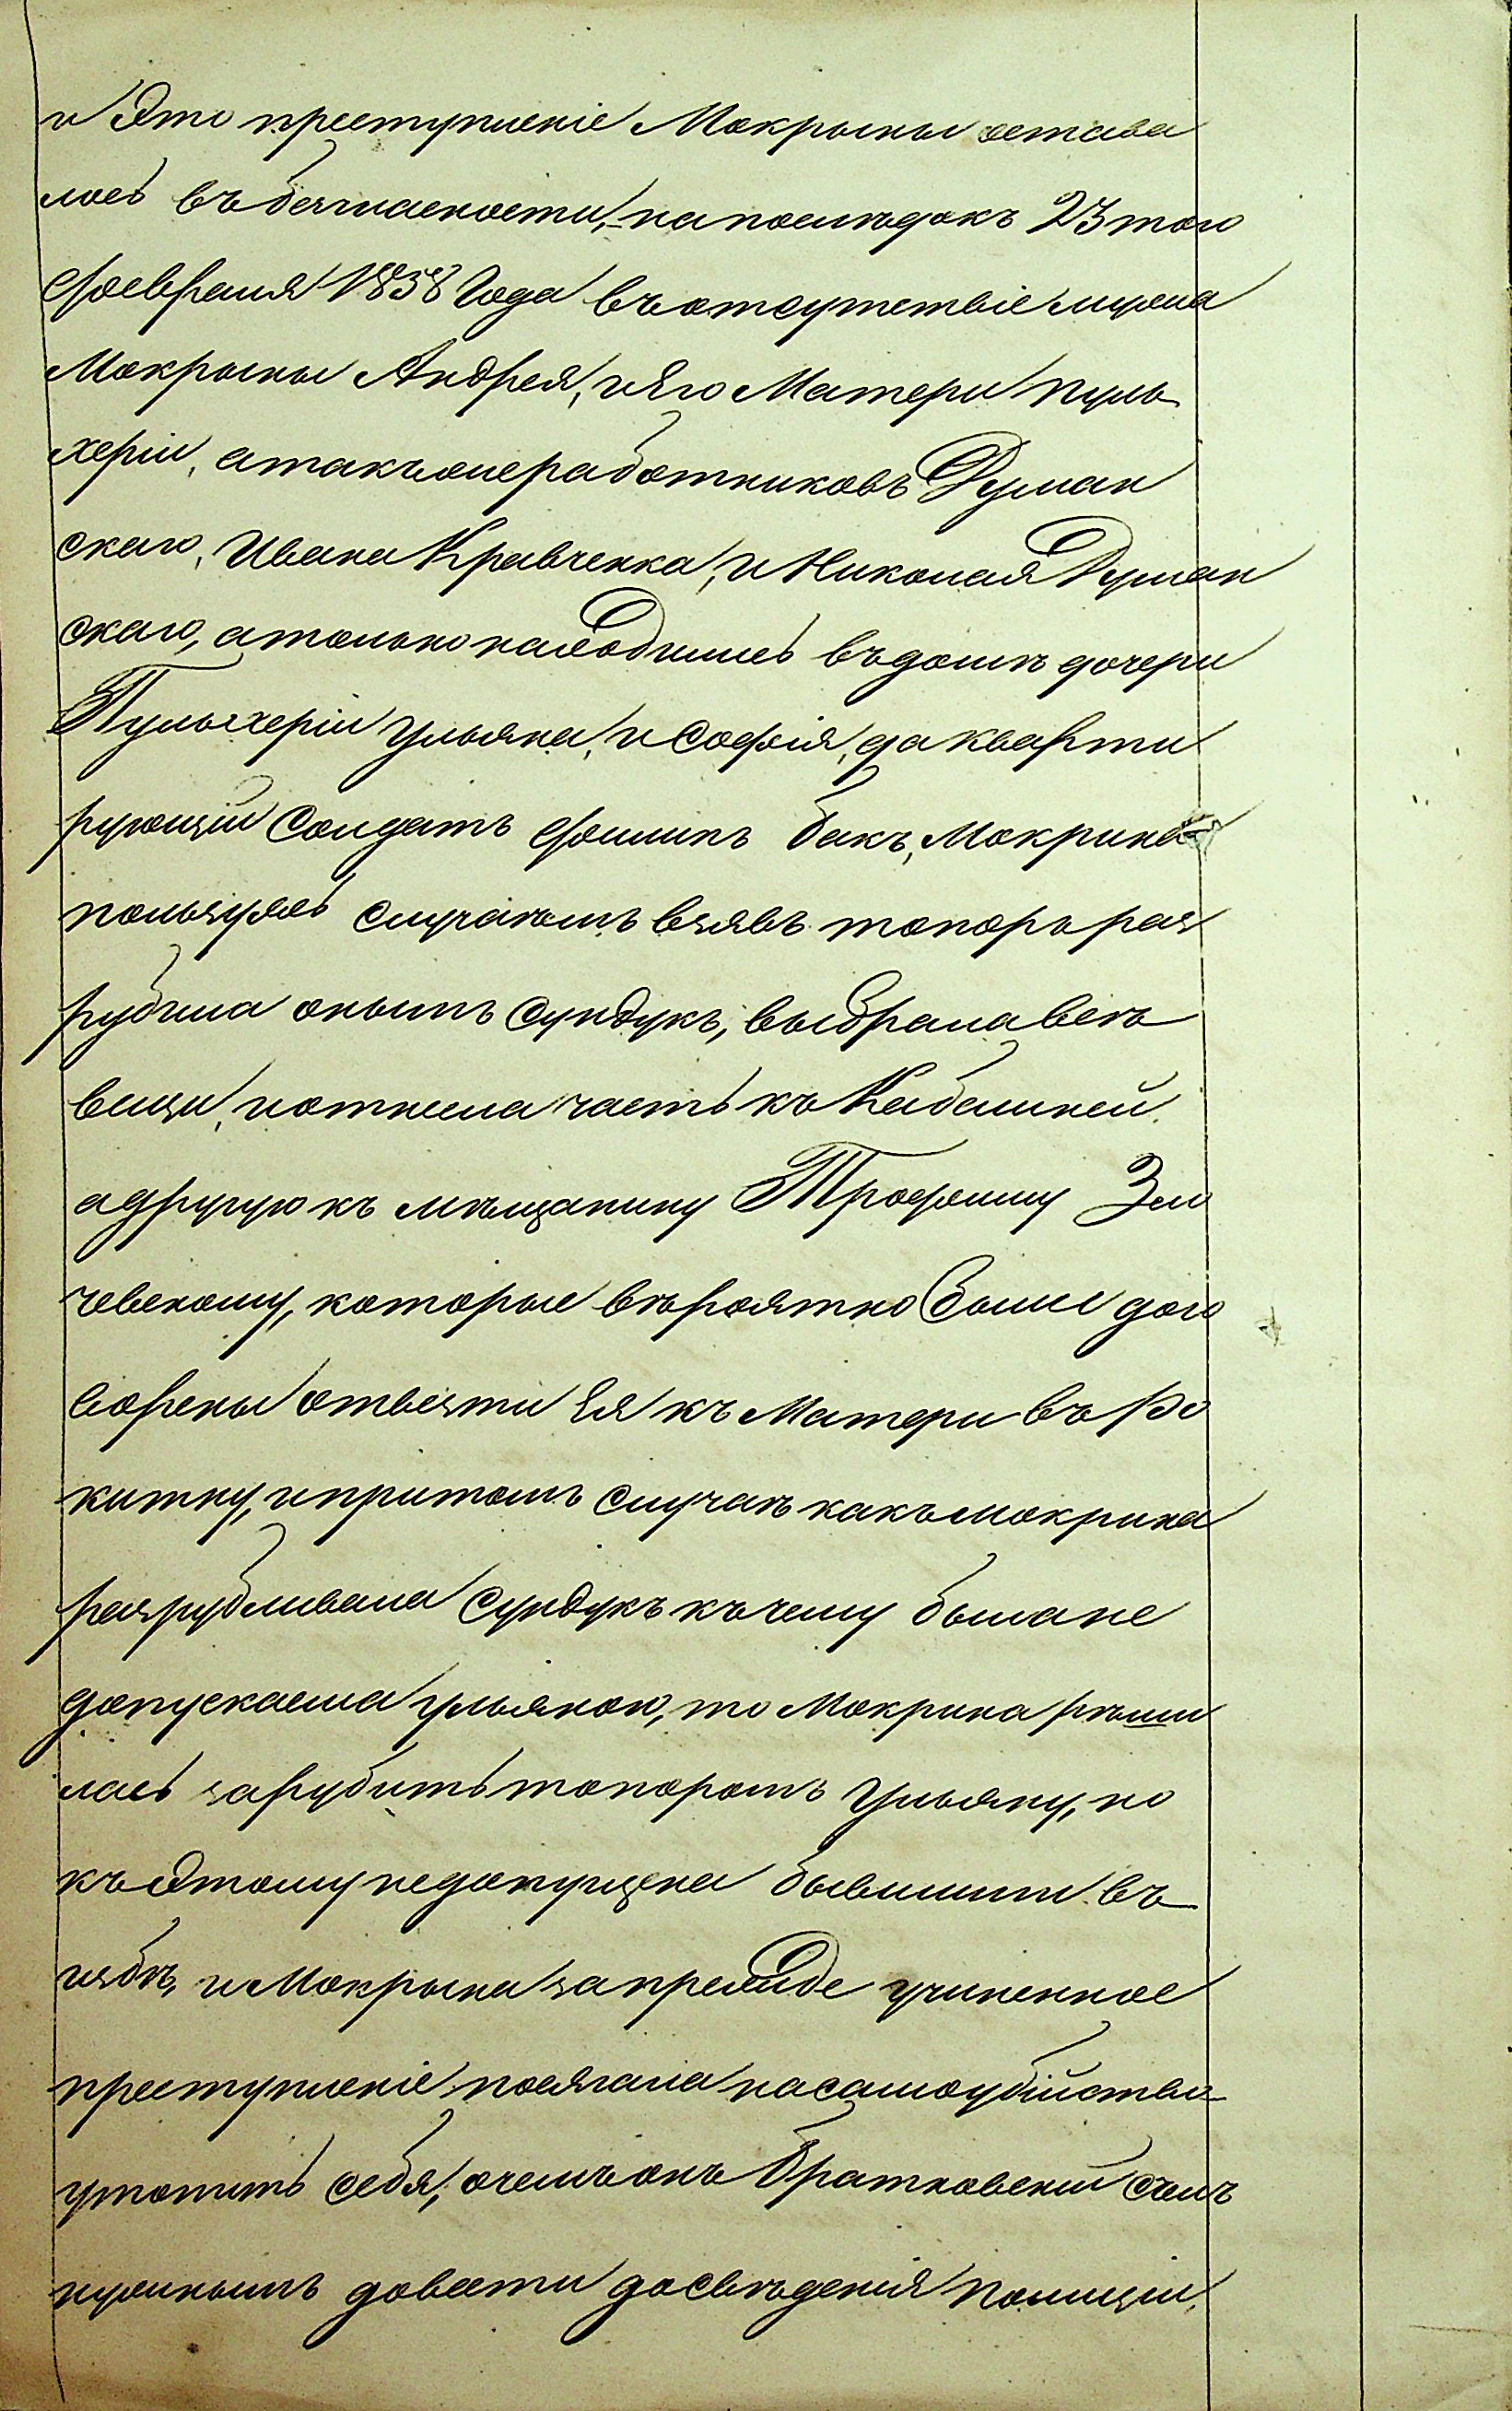 и Это преступленіе Мокрыны остава
лось въ безгласности, - напоследокъ 23 того
февраля 1858 Года въ отсутствіе мужа
Мокрыны Андрея, и Его Матери пуль
херіи, а такъже работниковъ Думан
скаго, Ивана Кравченка, и Николая Думан
скаго, а только находились въ доме дочери
Пульхеріи Ульяна, и Софія, да кварти
рующій Солдатъ фомытъ бакъ, Мокрина
пользуясь случаемъ взявъ топоръ раз
рубила онымъ сундукъ, выбрала всѣ
вещи, и отнесла часть къ Кабашней
а другую къ мѣщанину Трофиму Зло
чевскому, которые вѣроятно были дого
ворены отвезти Ея къ Матери въ Ро
китну, и при томъ случаѣ какъ мокрина
разрубливала сундукъ къ чему была не
допускаема ульяною, то Мокрина рѣши
лась зарубить топоромъ Ульяну, но
къ Этому недопущена бывшими въ
избѣ, и Мокрына за прежде учиненное
преступленіе посягала на самоубійство
утопить себя, о чемъ онъ Братковскій счелъ
нужнымъ довести до свѣденія полиціи,